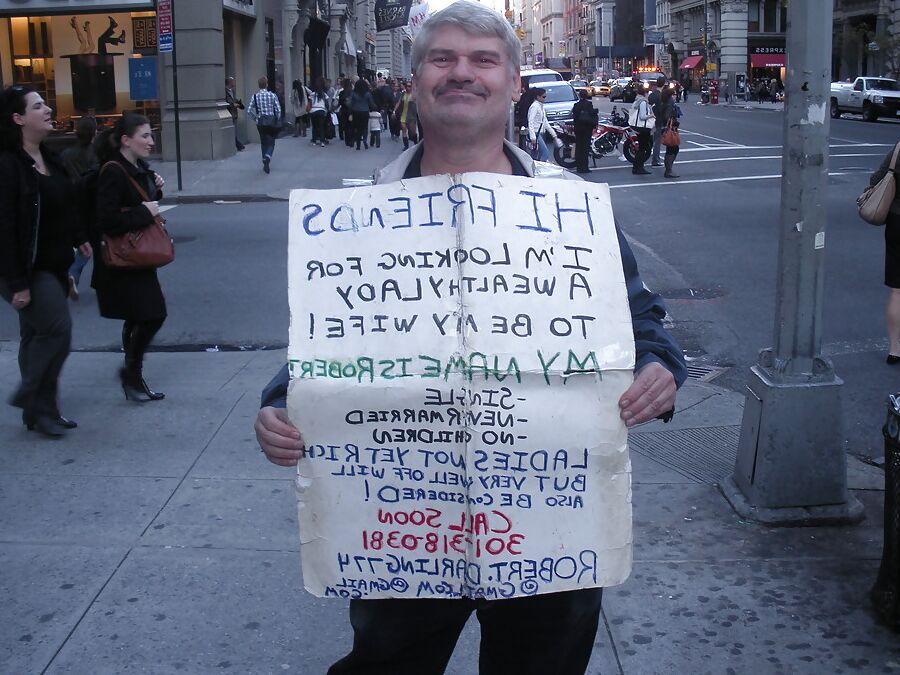 HI FRIENDS
I'M LOOKING FOR
A WEALTHY LADY
TO BE MY WIFE!
MY NAME IS ROBERT
-SINGLE
-NEVER MARRIED
-NO CHILDREN
LADIES NOT YET RICH
BUT VERY WELL OFF WILL
ALSO BE CONSIDERED!
CALL SOON
301-318-0381
ROBERT.DARLING774
@GMAIL.COM @GMAIL
.COM
EXPRESS